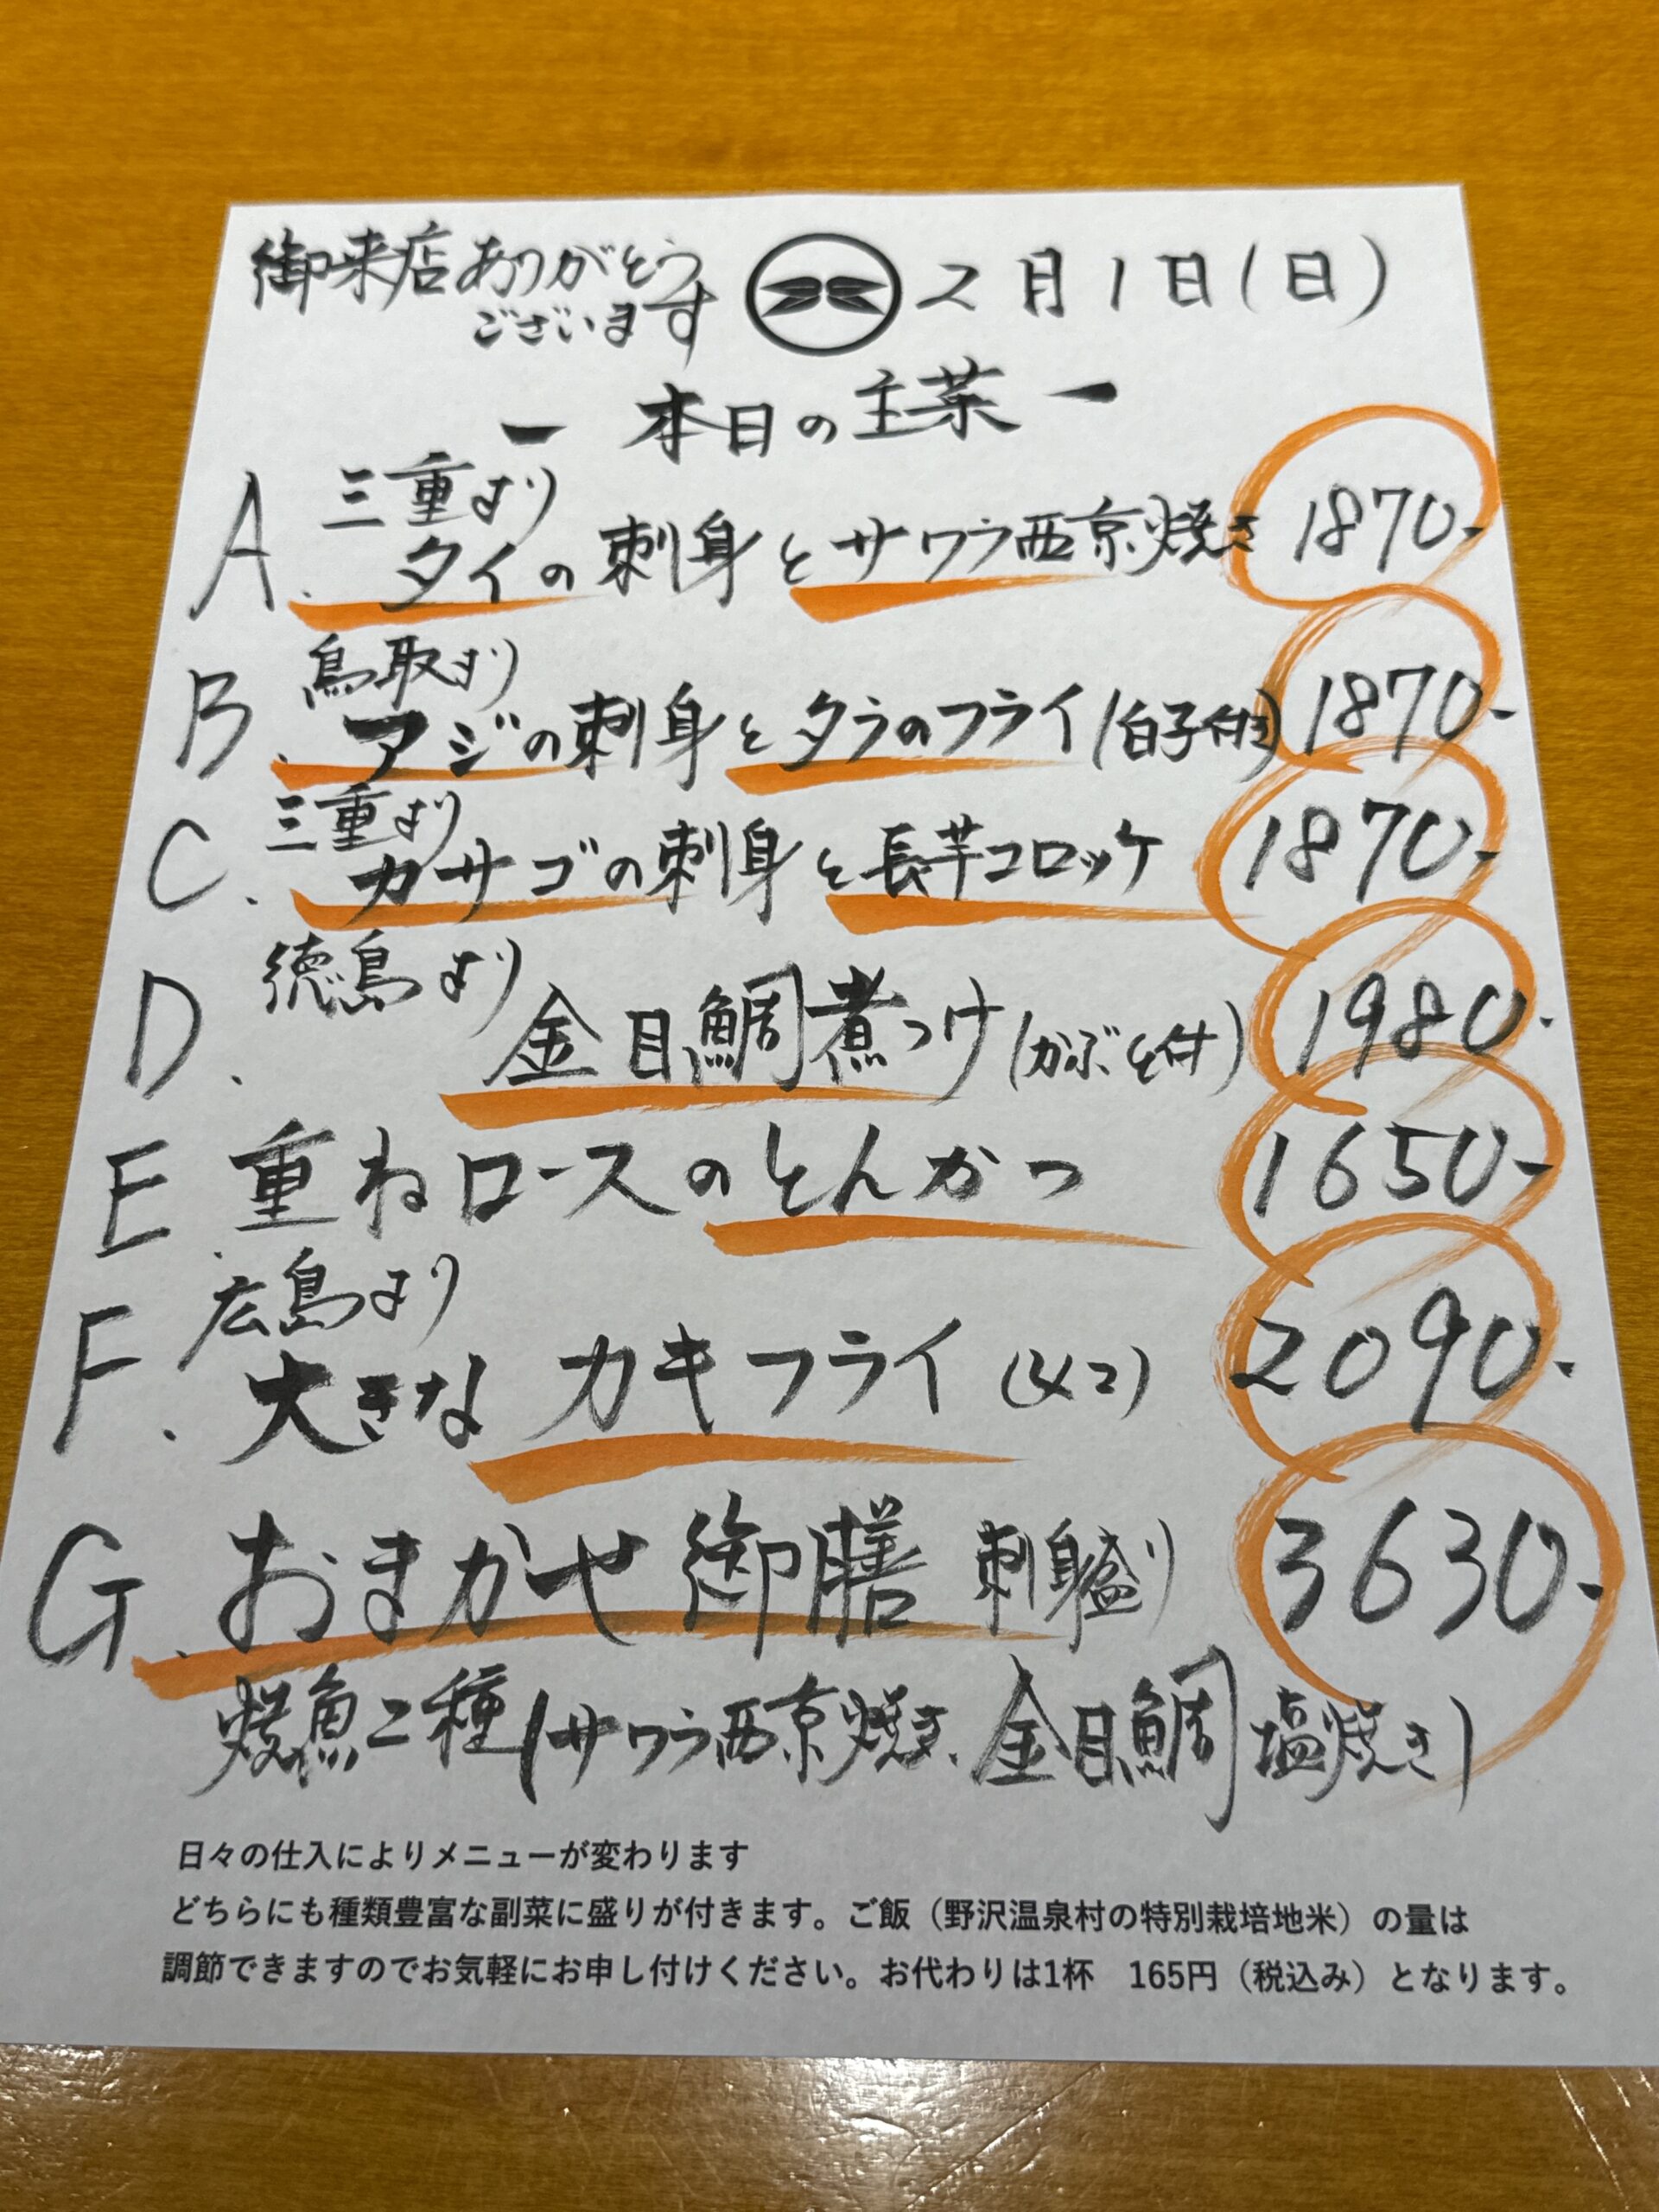 御来店ありがとう
ございます
2月1日(日)
ー 本日の主菜 ー
三重より
A. タイの刺身とサワラ西京焼き 1870-
鳥取より
B. アジの刺身とタラのフライ(白子付き) 1870-
三重より
C. カサゴの刺身と長芋コロッケ 1870-
徳島より
D. 金目鯛煮つけ(かぶと付) 1980-
E. 重ねロースのとんかつ 1650-
広島より
F. 大きなカキフライ(4コ) 2090-
G. おまかせ御膳 刺身盛り 3630-
焼魚二種(サワラ西京焼き、金目鯛塩焼き)
日々の仕入によりメニューが変わります
どちらにも種類豊富な副菜に盛りが付きます。ご飯(野沢温泉村の特別栽培地米)の量は
調節できますのでお気軽にお申し付けください。お代わりは1杯 165円(税込み)となります。